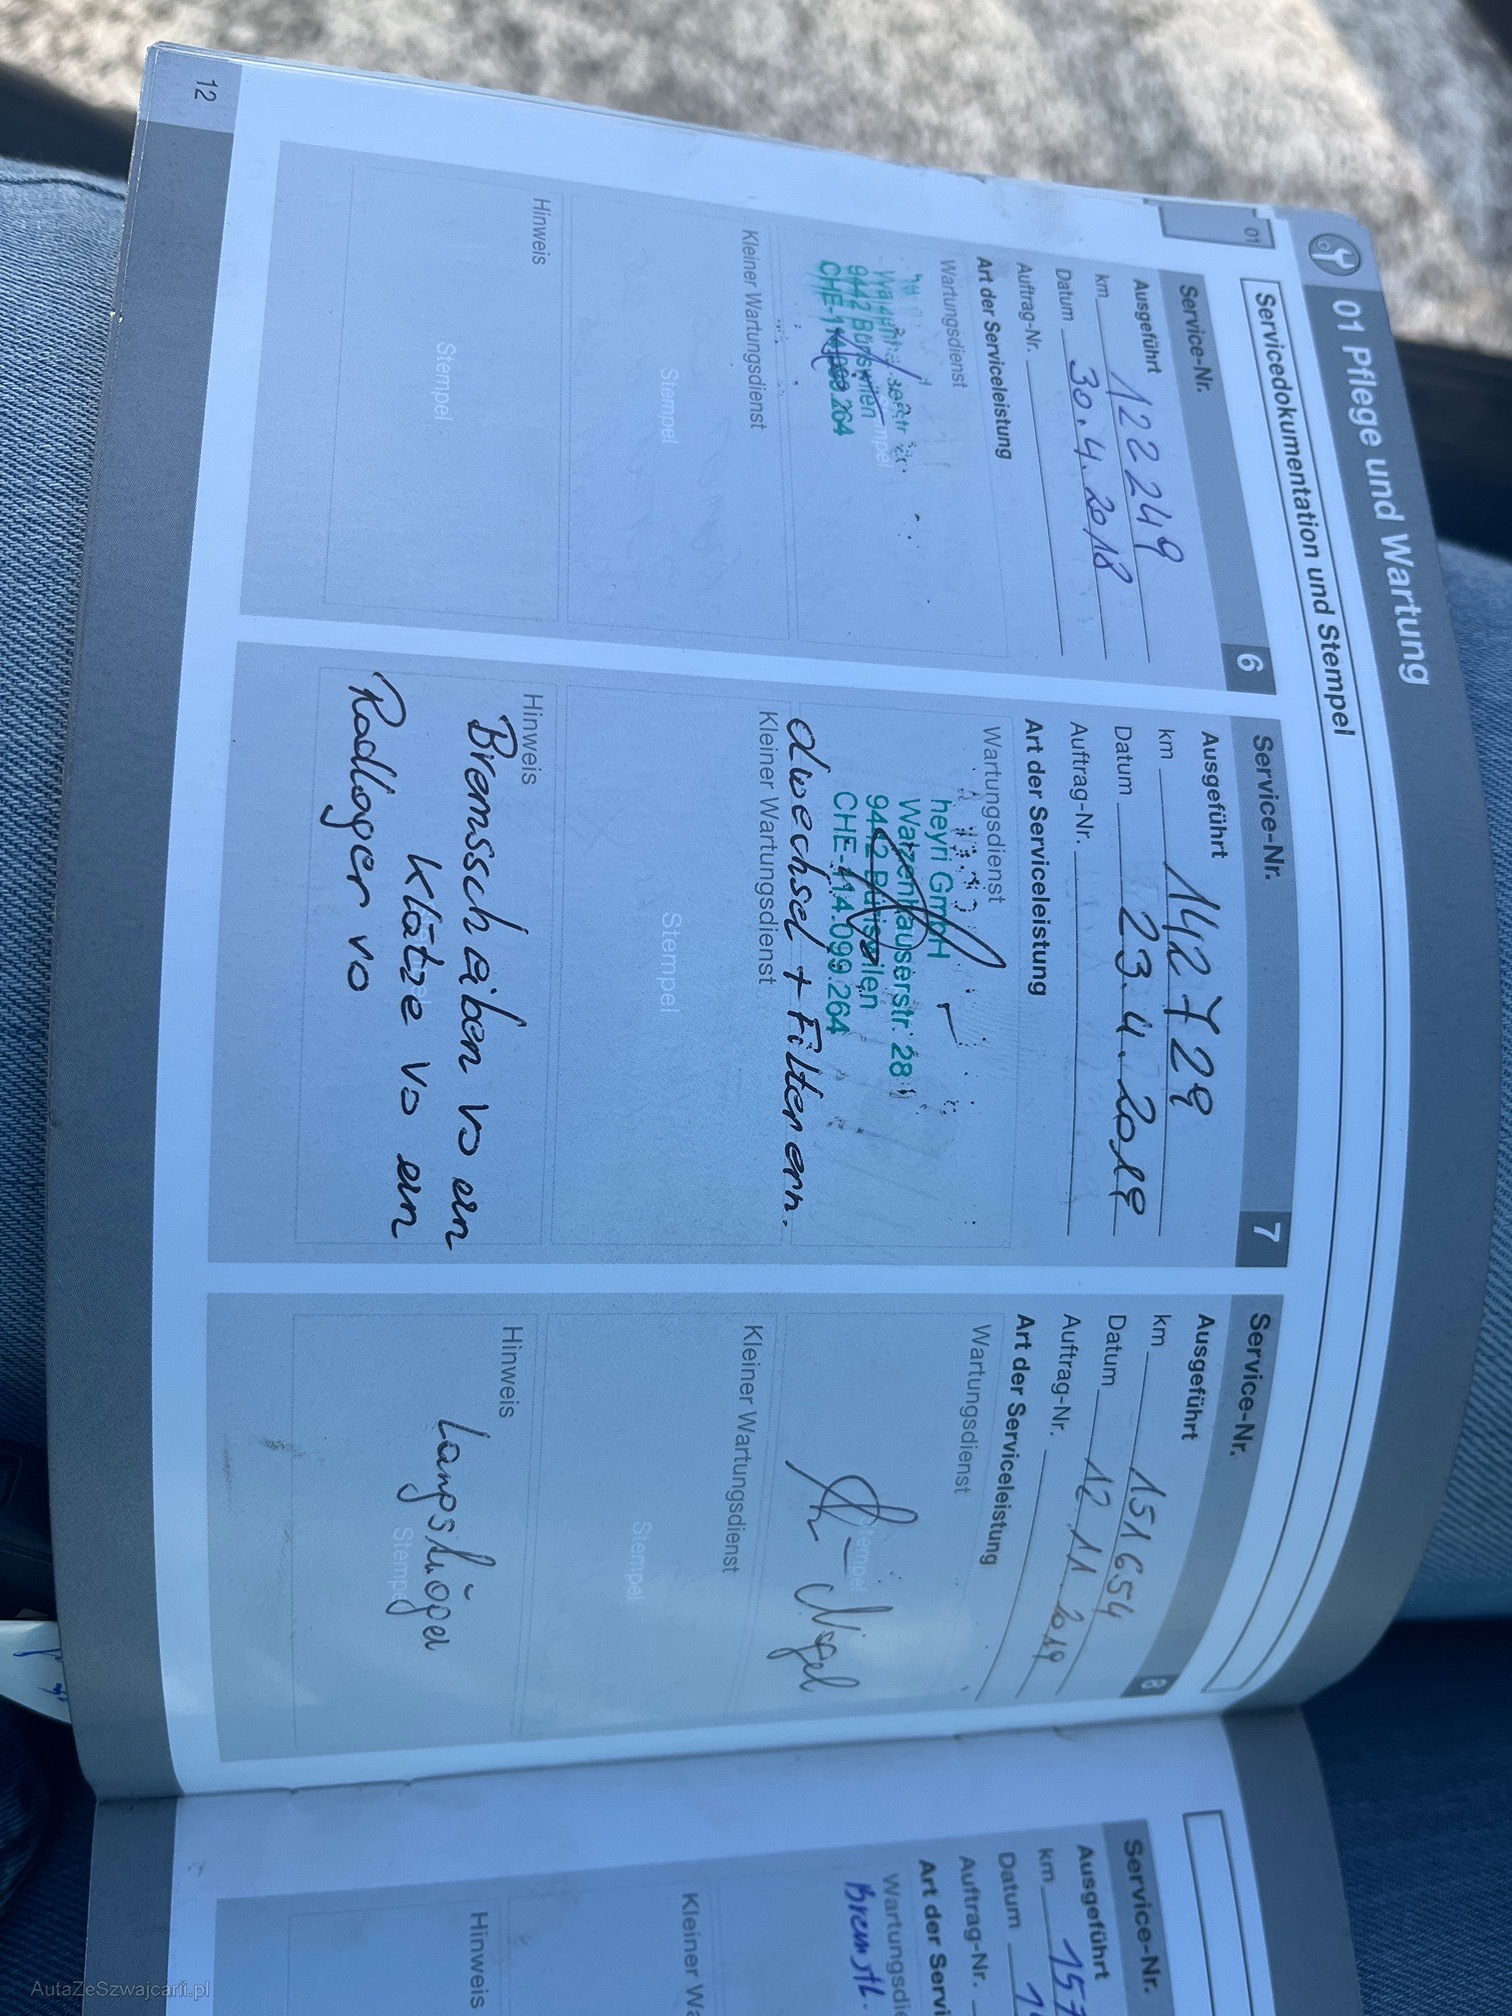 01 Pflege und Wartung
01
Servicedokumentation und Stempel
Service-Nr. 6
Ausgeführt
km 122249
Datum 30.4.2018
Auftrag-Nr.
Art der Serviceleistung
Wartungsdienst
Stempel
9442 Büriswilen
CHE-114.099.264
Kleiner Wartungsdienst
Stempel
Hinweis
Stempel
Service-Nr. 7
Ausgeführt
km 142729
Datum 23.4.2019
Auftrag-Nr.
Art der Serviceleistung
Wartungsdienst
heyri GmbH
Watzenhauserstr. 28
9442 Büriswilen
CHE-114.099.264
ölwechsel + Filter ern.
Kleiner Wartungsdienst
Stempel
Hinweis
Bremsscheiben vo ern
Klötze vo ern
Radlager vo
Service-Nr. 8
Ausgeführt
km 151654
Datum 12.11.2019
Auftrag-Nr.
Art der Serviceleistung
Wartungsdienst
Stempel
Kleiner Wartungsdienst
Stempel
Hinweis
Stempel
12
Service-Nr.
Ausgeführt
km 157
Datum 1
Auftrag-Nr.
Art der Servi
Wartungsdie
Bremsfl.
Kleiner Wa
Hinweis
AutaZeSzwajcarii.pl